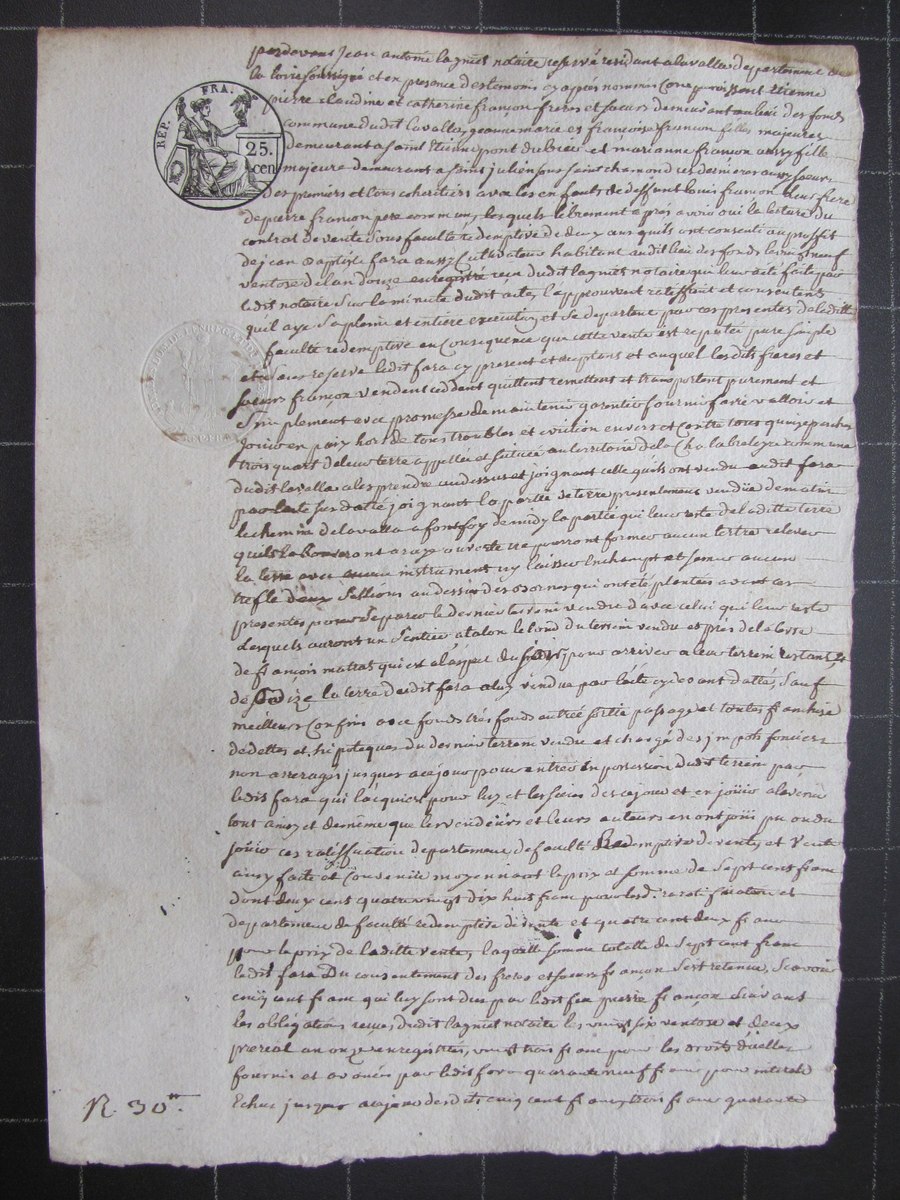 REP. FRA.
25. cen
pardevant Jean antoine laguiet notaire reservé residant a lavalla departement de
la loire soussigné et en presence des temoins cy apres nommés Comparoissent Etienne
pierre claudine et catherine françon freres et sœurs demeurant au lieu des fonds
commune dudit lavalla, jeanne marie et françoise françon filles majeures
demeurant a saint Etienne pont et marianne françon aussy fille
majeure demeurant a saint julien sous saint chamond ces dernieres aussy sœurs
des premiers et tous coheritiers avec les enfants de deffunt louis françon leur frere
de pierre françon pere commun, lesquels librement apres avoir oui la lecture du
contrat de vente sous faculté redemptive de deux ans quils ont consenti au proffit
de jean Baptiste fara aussy Cultivateur habitant audit lieu des fonds le vingt neuf
ventose de lan douze enregistré reçu dudit laguiet notaire qui leur a été faite par
ledit notaire sur la minute dudit acte, lapprouvent ratiffient et consentent
quil aye sa pleine et entiere execution et se departent par ces presentes de laditte
faculté redemptive en Consequence que cette vente est reputée pure simple
et sans reserve ledit fara cy present et acceptant et auquel lesdits freres et
sœurs françon vendent cedent quittent remettent et transportent purement et
simplement avec promesse de maintenir garantir fournir faire valloir et
jouir en paix hors de tous troubles et eviction envers et contre tous
trois quart de leur terre appellée et située au territoire de la commune
dudit lavalla a les prendre au dessus et joignant celle quils ont vendu audit fara
par lacte susdatté joignant la partie de terre presentement vendüe de matin
le chemin de lavalla a de midy la partie qui leur reste de laditte terre
quils ne pourront former aucun tertre relever
la terre avec aucun instrument ny laisser En champt et semer aucun
trefle deux sillions au dessus des bornes qui ont été plantées avant ces
presentes pour separer le dernier terrein vendu davec celui qui leur reste
Lesquels auront un Sentier le long du terrein vendu et prés de la terre
de françois mattas qui est a laspect du pour arriver a leur terrein restant, et
de la terre dudit fara a luy vendue par lacte cydevant datté, Sauf
meilleurs Confins avec fonds trés fonds entrée sortie passage et toutes franchise
de dettes et hipoteques du dernier terrein vendu et chargé des impots fonciers
non arreragés jusques a ce jour pour entrer en possession dudit terrein par
ledit fara qui lacquiert pour luy et les siens des ce jour et en joüir a lavenir
tout ainsy et de même que les vendeurs et leurs auteurs en ont joüi pu ou du
joüir ces ratiffication departement de faculté Redemptive de vente et Vente
ainsy faite et Convenüe moyennant le prix et somme de sept cent franc
dont deux cent quatre vingt dix huit franc pour lesd. ratiffication et
departement de faculté redemptive de vente et quatre cent deux franc
pour le prix de laditte vente, laquelle somme totalle de sept cent franc
ledit fara Du consentement des freres et sœurs françon sest retenue, scavoir
cinq cent franc qui luy sont dus par ledit feu pierre françon suivant
les obligations reçues dudit laguiet notaire les vingt six ventose et deux
prereal an onze enregistrées, vingt trois franc pour les droits dicelles
fournis et avancés par ledit fara quarante neuf franc pour interets
Echus jusques a ce jour desdits cinq cent franc, trois franc quarante
R. 30